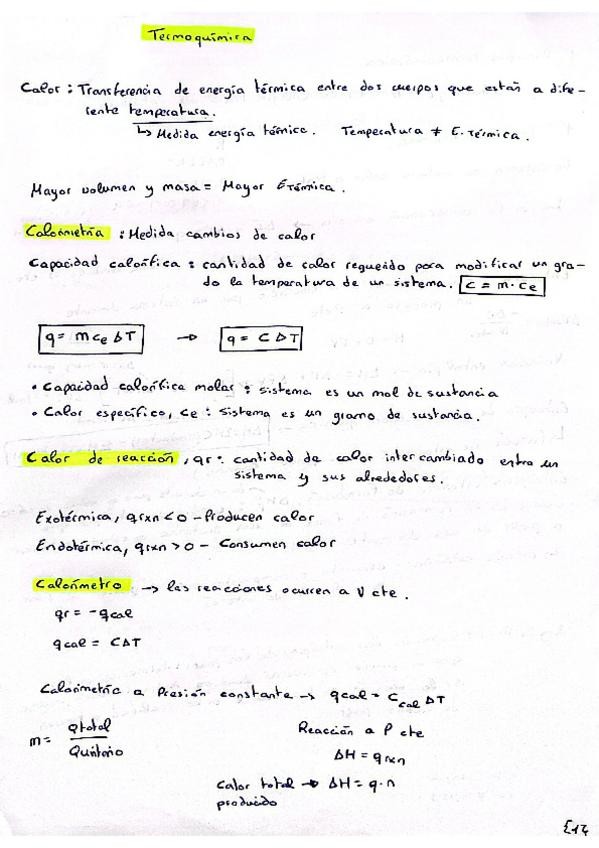 Termoquímica
Calor : Transferencia de energía térmica entre dos cuerpos que estañ a dife-
rente temperatura.
↳ Medida energía térmica. Temperatura ≠ E. térmica.
Mayor volumen y masa = Mayor Etérmica.
Calorimetría : Medida cambios de calor
Capacidad calorífica : cantidad de calor requerido para modificar un gra-
do la temperatura de un sistema. C = m · ce
q = m ce ΔT → q = C ΔT
• Capacidad calorífica molar : sistema es un mol de sustancia
• Calor específico, ce : sistema es un gramo de sustancia.
Calor de reacción, qr : cantidad de calor intercambiado entre un
sistema y sus alrededores.
Exotérmica, qrxn < 0 - Producen calor
Endotérmica, qrxn > 0 - Consumen calor
Calorímetro → las reacciones ocurren a V cte.
qr = - qcal
qcal = CΔT
Calorimetría a Presión constante → qcal = Ccal ΔT
m = Qtotal / Qunitario
Reacción a P cte
ΔH = qrxn
Calor total → ΔH = q · n
producido